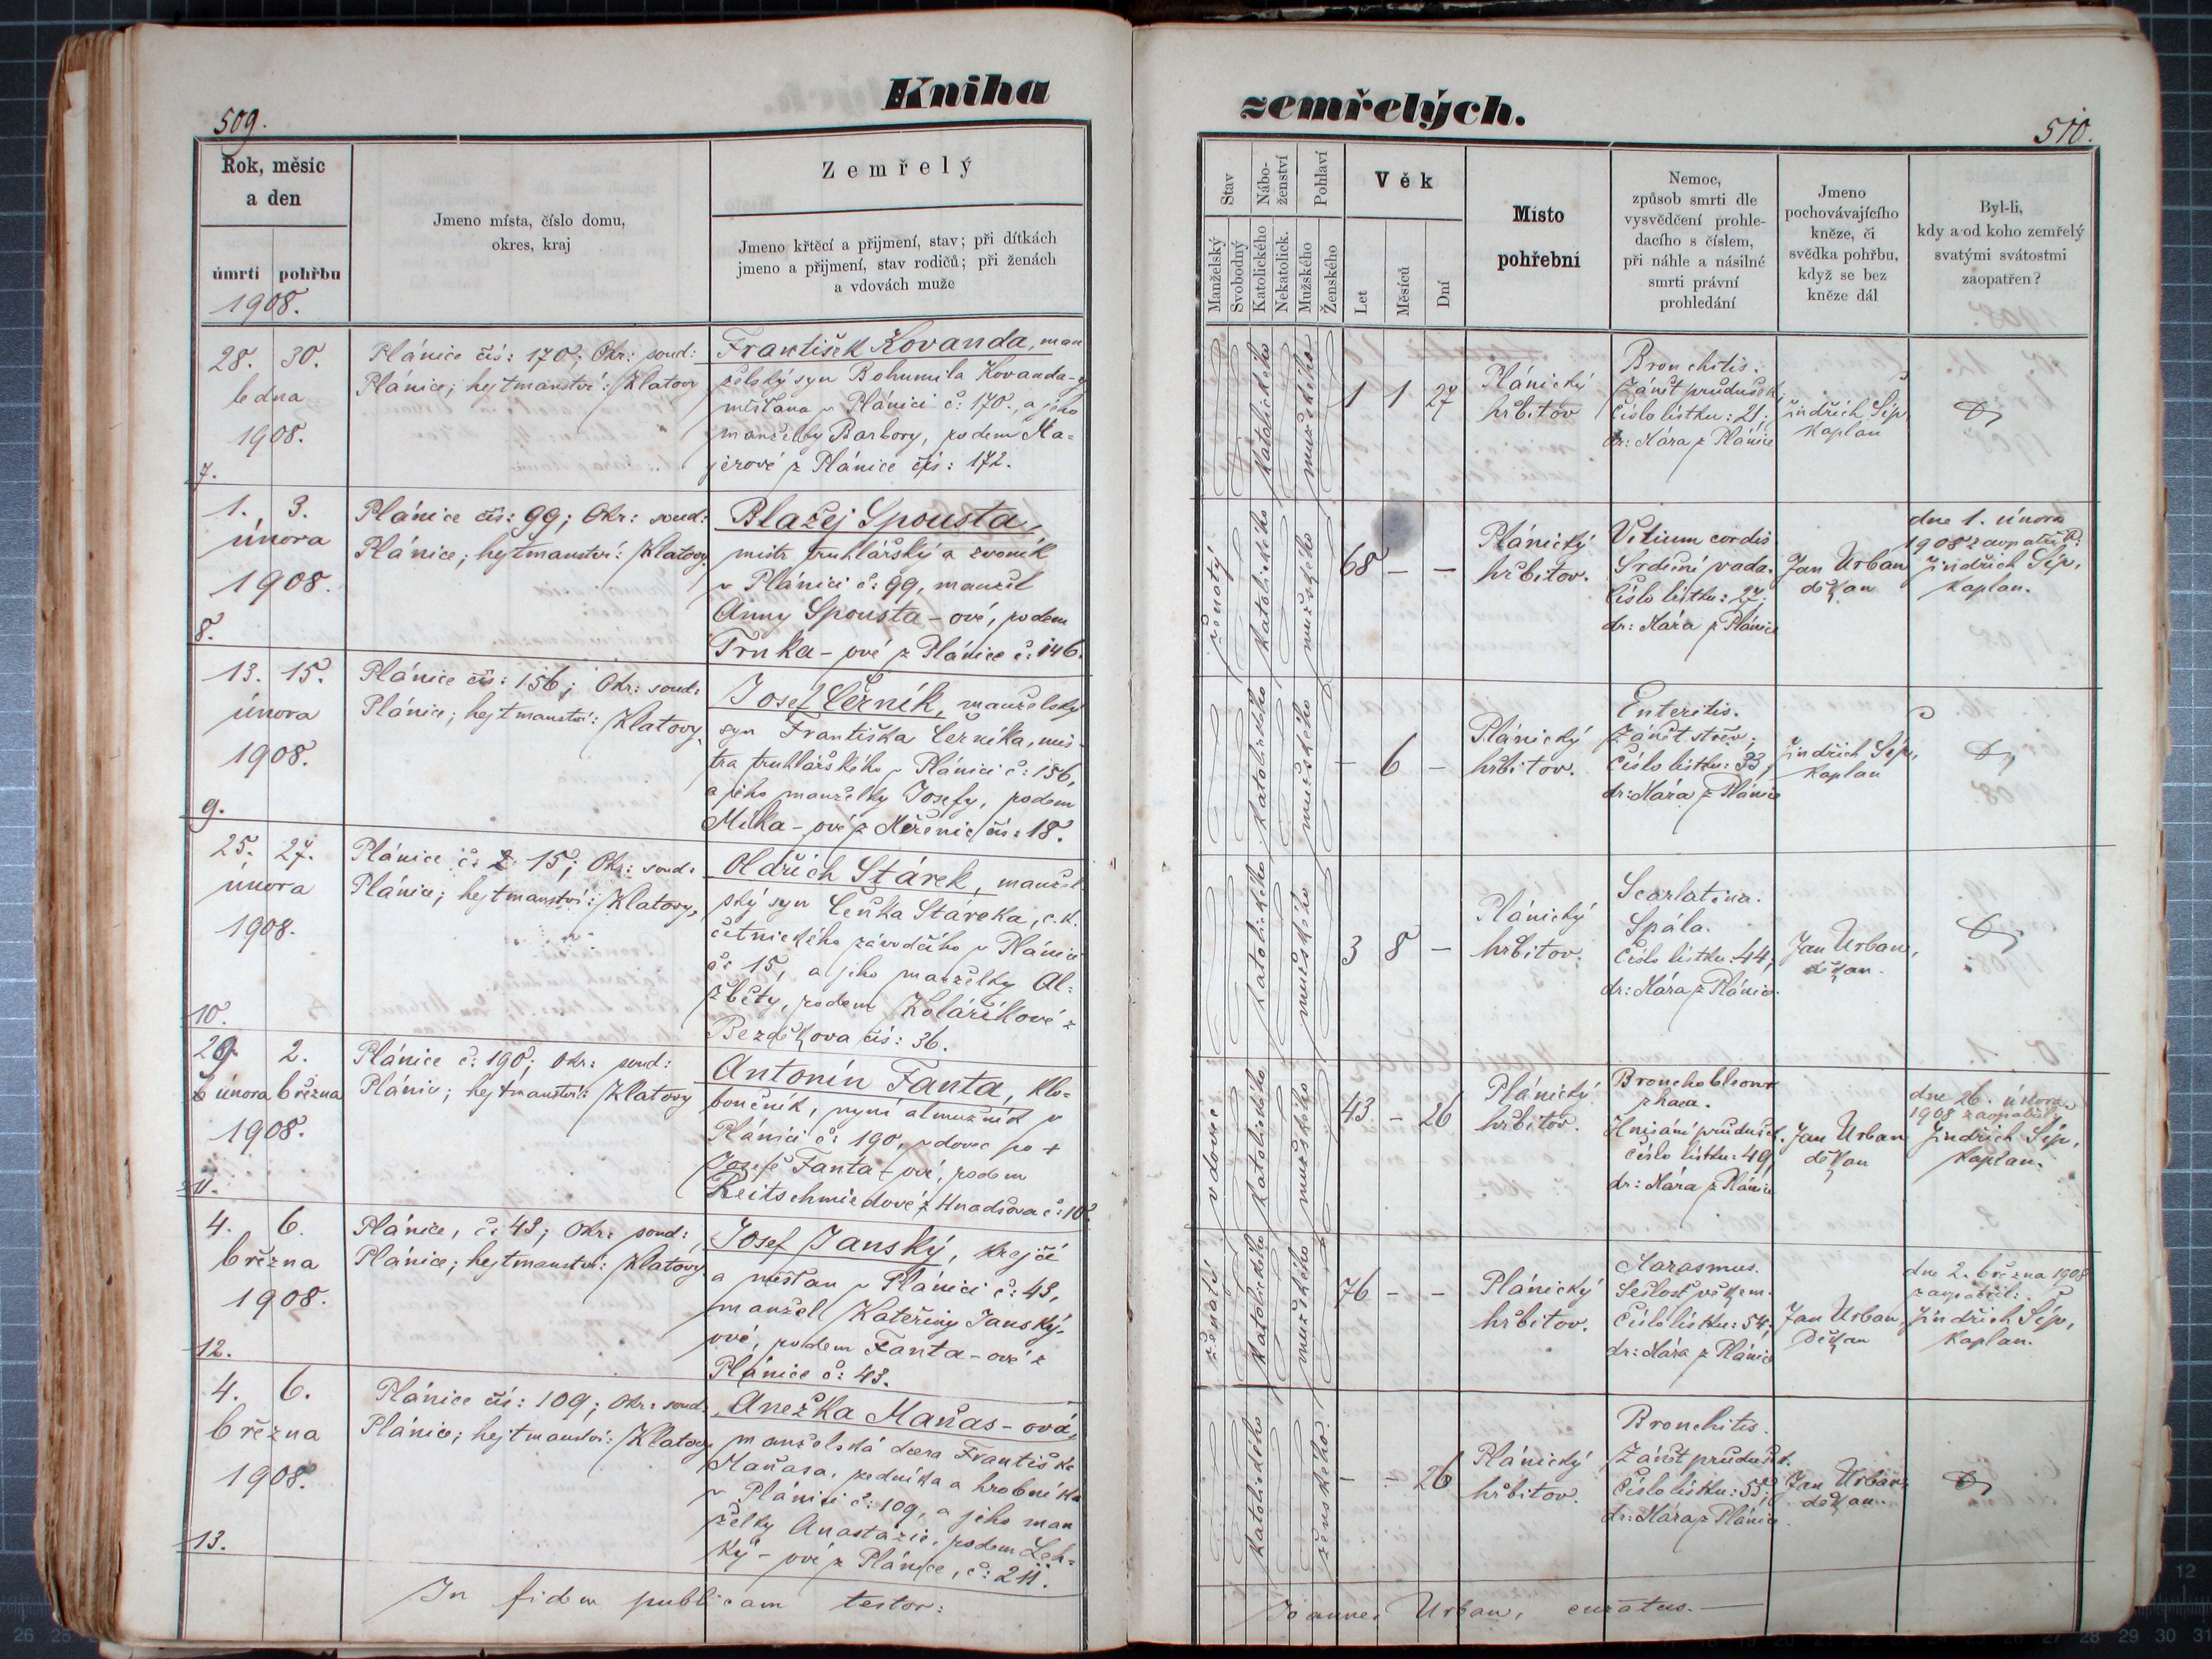 Kniha
509.
Rok, měsíc
a den
úmrtí pohřbu
1908.
Jmeno místa, číslo domu,
okres, kraj
Zemřelý
Jmeno křtěcí a přijmení, stav; při dítkách
jmeno a přijmení, stav rodičů; při ženách
a vdovách muže
28. 30.
ledna
1908.
7.
Plánice čís: 170; Okr: soud:
Plánice; hejtmanství: Klatovy
František Kovanda, man
želský syn Bohumila Kovanda-y
měšťana v Plánici č: 170., a jeho
manželky Barbory, rodem Ma=
jerové z Plánice čís: 172.
1. 3.
února
1908.
8.
Plánice čís: 99; Okr: soud:
Plánice; hejtmanství: Klatovy.
Blažej Spousta,
mistr truhlářský a zvoník
v Plánici č: 99, manžel
Anny Spousta-ové, rodem
Trnka-ové z Plánice č: 146.
13. 15.
února
1908.
9.
Plánice čís: 156; Okr: soud:
Plánice; hejtmanství: Klatovy.
Josef Černík, manželský
syn Františka Černíka, mis-
tra truhlářského v Plánici č: 156,
a jeho manželky Josefy, rodem
Mika-ové z čís: 18.
25. 27.
února
1908.
10.
Plánice č: 15; Okr: soud:
Plánice; hejtmanství: Klatovy,
Oldřich Stárek, manžel
ský syn Čeňka Stáreka, c. k.
četnického závodčího v Plánici
č: 15, a jeho manželky Al=
žběty, rodem Kolaříkové z
Bezděkova čís: 36.
29. 2.
února března
1908.
11.
Plánice č: 190; Okr: soud:
Plánice; hejtmanství: Klatovy
Antonín Fanta, klo=
boučník, nyní almužník v
Plánici č: 190, vdovec po +
Josefě Fanta-ové, rodem
Reitschmiedové z Hnačova č: 10.
4. 6.
března
1908.
12.
Plánice, č: 43; Okr: soud:
Plánice; hejtmanství: Klatovy
Josef Janský, krejčí
a měšťan v Plánici č: 43,
manžel Kateřiny Janský-
ové, rodem Fanta-ové z
Plánice č: 43.
4. 6.
března
1908.
13.
Plánice čís: 109; Okr: soud:
Plánice; hejtmanství: Klatovy
Anežka Maňas-ová,
manželská dcera Františka
Maňasa, zedníka a hrobníka
v Plánici č: 109, a jeho man
želky Anastázie, rodem
ký-ové z Plánice, č: 211.
In fidem publicam testor:
zemřelých.
510.
Stav
Manželský
Svobodný
Nábo-
ženství
Katolického
Nekatolick.
Pohlaví
Mužského
Ženského
Věk
Let
Měsíců
Dní
Místo
pohřební
Nemoc,
způsob smrti dle
vysvědčení prohle-
dacího s číslem,
při náhle a násilné
smrti právní
prohledání
Jmeno
pochovávajícího
kněze, či
svědka pohřbu,
když se bez
kněze dál
Byl-li,
kdy a od koho zemřelý
svatými svátostmi
zaopatřen?
Katolického
mužského
1 1 27
Plánický
hřbitov
Bronchitis.
Zánět průdušek,
Číslo lístku: 21;
dr: Mára z Plánice
Jindřich Šíp,
kaplan
ženatý
Katolického
mužského
68 – –
Plánický
hřbitov.
Vitium cordis
Srdeční vada.
Číslo lístku: 27;
dr: Mára z Plánice
Jan Urban
děkan
dne 1. února
1908 zaopatřil:
Jindřich Šíp,
kaplan.
Katolického
mužského
– 6 –
Plánický
hřbitov.
Enteritis.
Zánět střev;
Číslo lístku: 33;
dr: Mára z Plánice
Jindřich Šíp,
kaplan
Katolického
mužského
3 8 –
Plánický
hřbitov.
Scarlatina.
Spála.
Číslo lístku: 44;
dr: Mára z Plánice.
Jan Urban,
děkan.
vdovec
Katolického
mužského
43 – 26
Plánický
hřbitov.
rhaea.
Hnisání průdušek.
Číslo lístku: 49,
dr: Mára z Plánice
Jan Urban
děkan
dne 26. února
1908 zaopatřil:
Jindřich Šíp,
kaplan.
ženatý
Katolického
mužského
76 – –
Plánický
hřbitov.
Marasmus.
Sešlost věkem.
Číslo lístku: 54,
dr: Mára z Plánice
Jan Urban,
Děkan
dne 2. března 1908
zaopatřil:
Jindřich Šíp,
kaplan.
Katolického
ženského
– – 26
Plánický
hřbitov.
Bronchitis.
Zánět průdušek.
Číslo lístku: 55;
dr: Mára z Plánice.
Jan Urban,
děkan.
Joannes Urban, curatus.